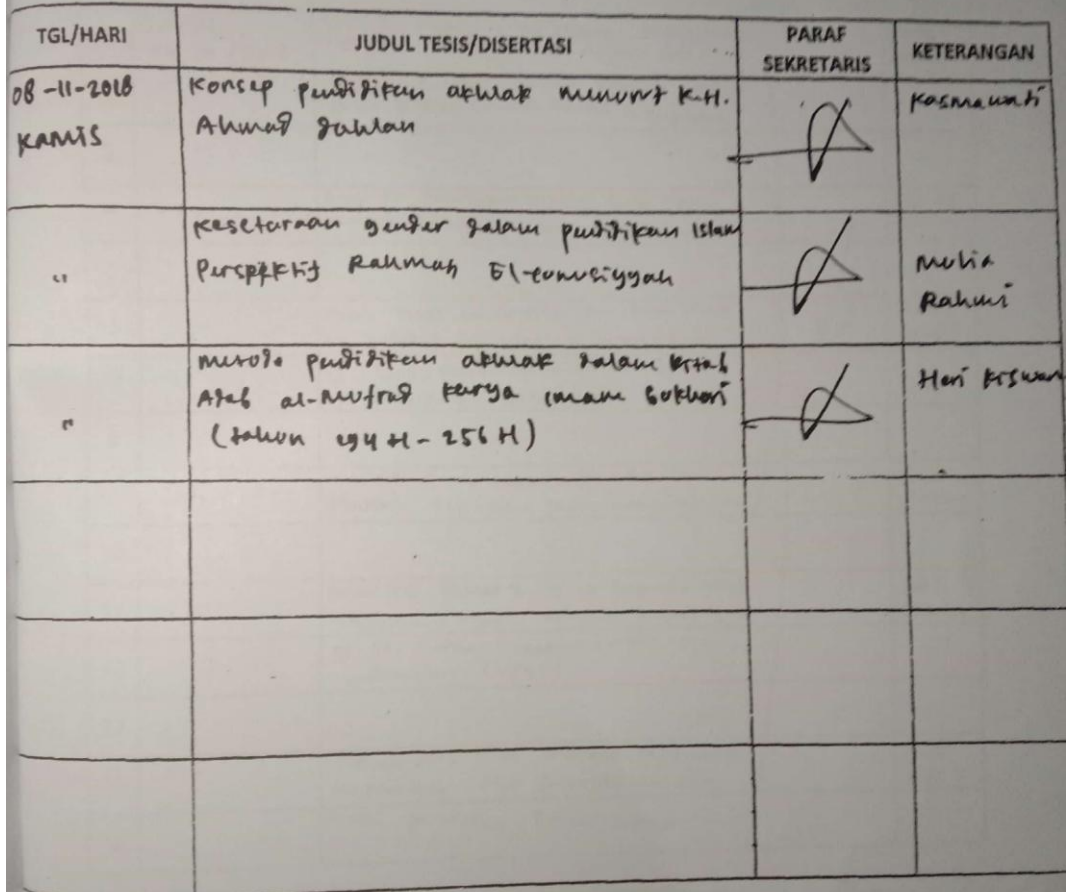 TGL/HARI
JUDUL TESIS/DISERTASI
PARAF
SEKRETARIS
KETERANGAN
08-11-2018
KAMIS
Konsep pendidikan akhlak menurut K.H.
Ahmad Dahlan
Kasmawati
"
Kesetaraan gender dalam pendidikan Islam
Perspektif Rahmah El-Yunusiyyah
Mulia
Rahmi
"
Metode pendidikan akhlak dalam kitab
Adab al-Mufrad karya imam Bukhari
(tahun 194 H - 256 H)
Heri Kiswan